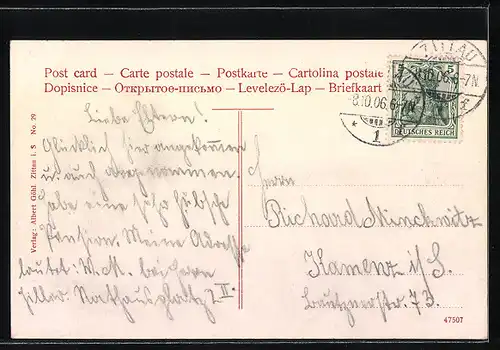 Post card – Carte postale – Postkarte – Cartolina postale
Dopisnice – Открытое-письмо – Levelezö-Lap – Briefkaart
ZITTAU
8.10.06.6-7N
* 1 f
5 5
DEUTSCHES REICH
Verlag: Albert Göhl, Zittau i. S. No. 29
Liebe Eltern!
Glücklich hier angekommen
u. auch abgenommen.
Habe eine sehr hübsche
Pension. Meine Adresse
lautet: W. M. bei Herrn
Hiller. Rathausplatz 2 II.
Herrn
Richard Minckwitz
Kamenz i/S.
Bautznerstr. 73.
47507